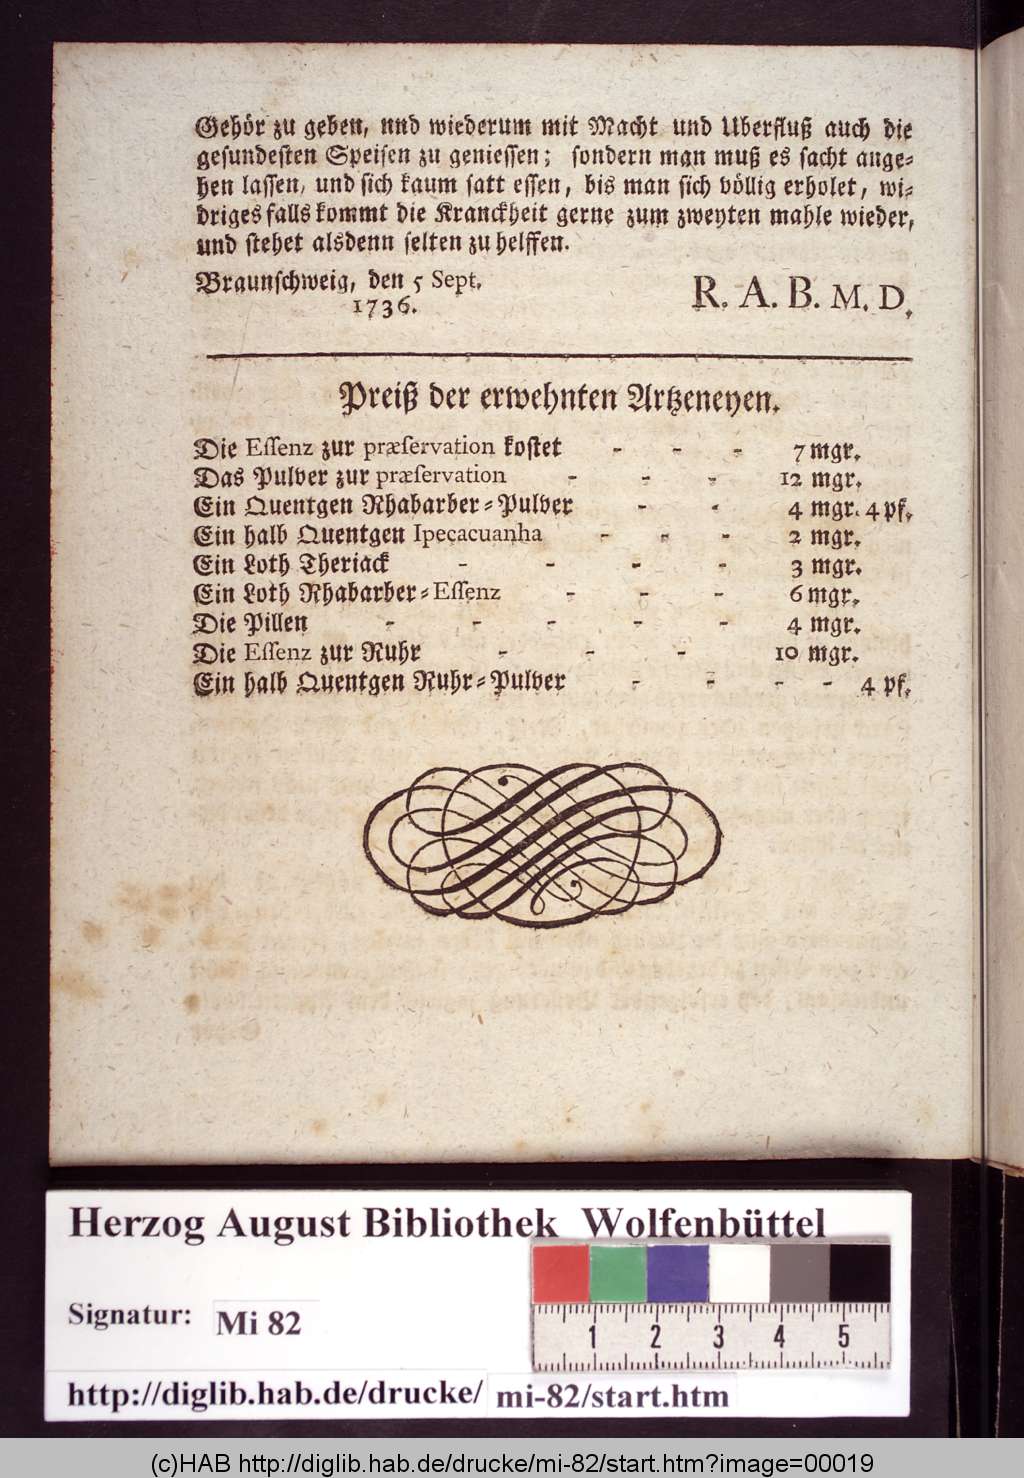 Gehör zu geben, und wiederum mit Macht und Uberfluß auch die
gesundesten Speisen zu geniessen; sondern man muß es sacht ange-
hen lassen, und sich kaum satt essen, bis man sich völlig erholet, wi-
driges falls kommt die Kranckheit gerne zum zweyten mahle wieder,
und stehet alsdenn selten zu helffen.
Braunschweig, den 5 Sept.
1736.
R. A. B. M. D.
Preiß der erwehnten Artzeneyen.
Die Essenz zur præservation kostet - - - 7 mgr.
Das Pulver zur præservation - - - 12 mgr.
Ein Quentgen Rhabarber-Pulver - - 4 mgr. 4 pf.
Ein halb Quentgen Ipecacuanha - - - 2 mgr.
Ein Loth Theriack - - - - 3 mgr.
Ein Loth Rhabarber-Essenz - - - 6 mgr.
Die Pillen - - - - - 4 mgr.
Die Essenz zur Ruhr - - - 10 mgr.
Ein halb Quentgen Ruhr-Pulver - - - - 4 pf.
Herzog August Bibliothek Wolfenbüttel
Signatur: Mi 82
1 2 3 4 5
http://diglib.hab.de/drucke/ mi-82/start.htm
(c)HAB http://diglib.hab.de/drucke/mi-82/start.htm?image=00019